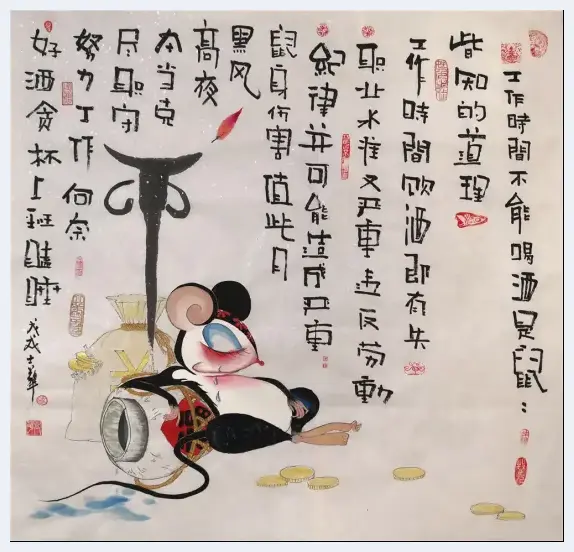 工作時間不能喝酒是鼠：
皆知的道理
工作時間饮酒即有失
职业水准又严重违反劳動
紀律并可能造成严重
鼠身伤害值此月
黑风
高夜
本当克
尽职守
努力工作何奈
好酒贪杯上班瞌睡
戊戌